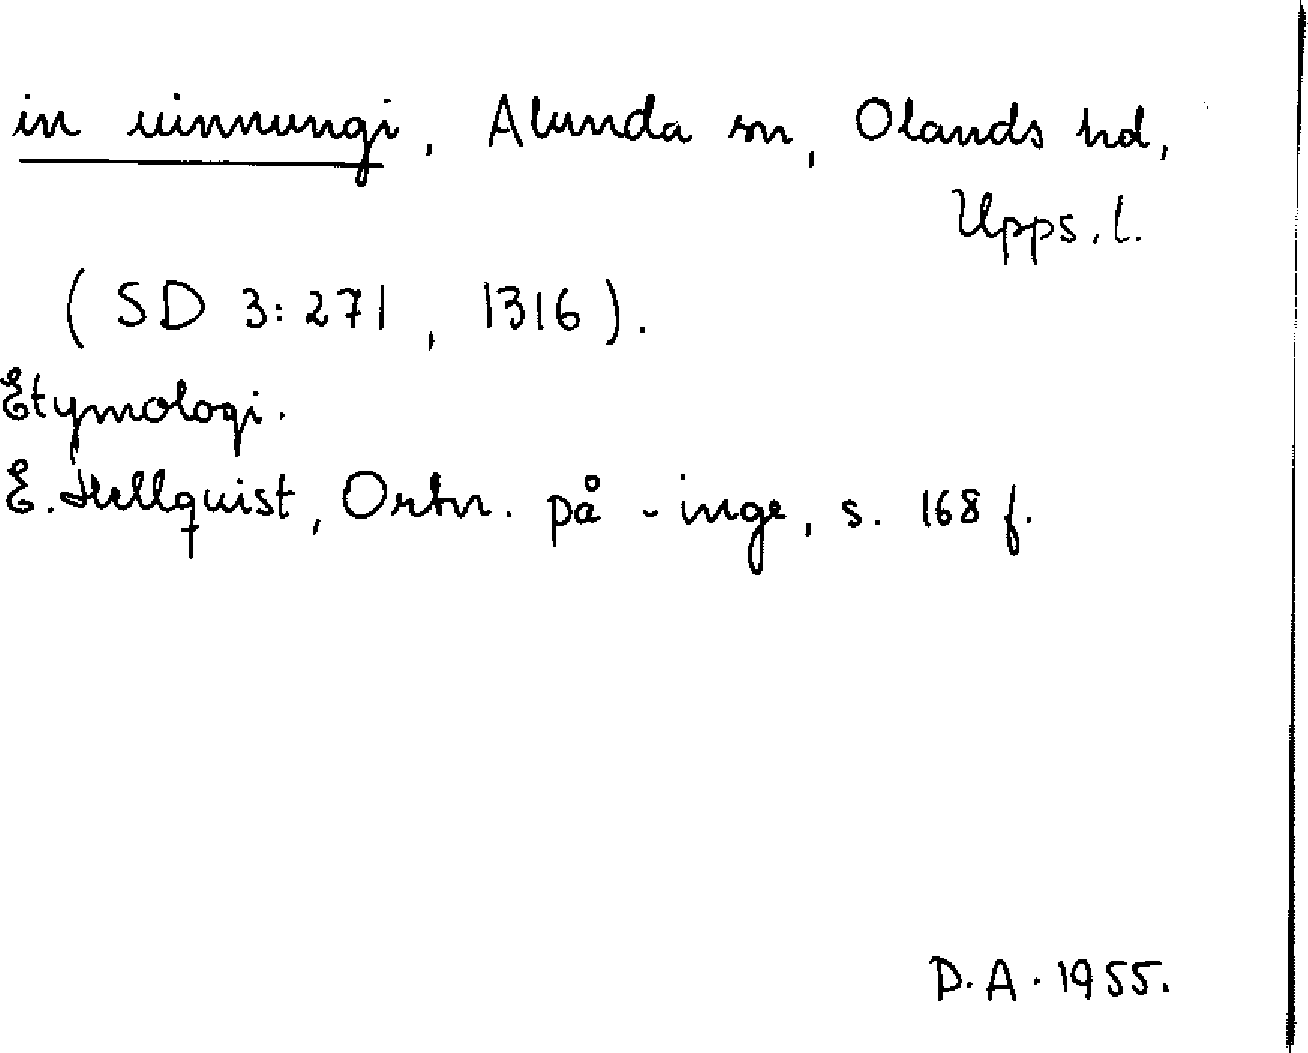 in uinnungi, Alunda sn, Olands hd,
Upps. l.
(SD 3:271, 1316).
Etymologi.
E. Hellquist, Ortn. på -inge, s. 168 f.
D.A. 1955.